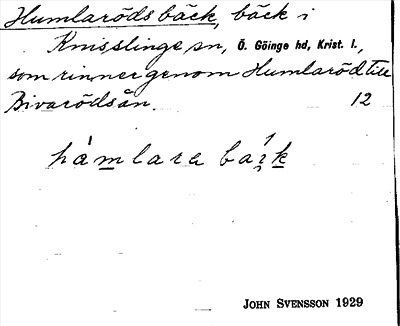 Humlarödsbäck, bäck i
Knisslinge sn, Ö. Göinge hd, Krist. l.,
som rinner genom Humlaröd till
Bivarödsån. 12
JOHN SVENSSON 1929